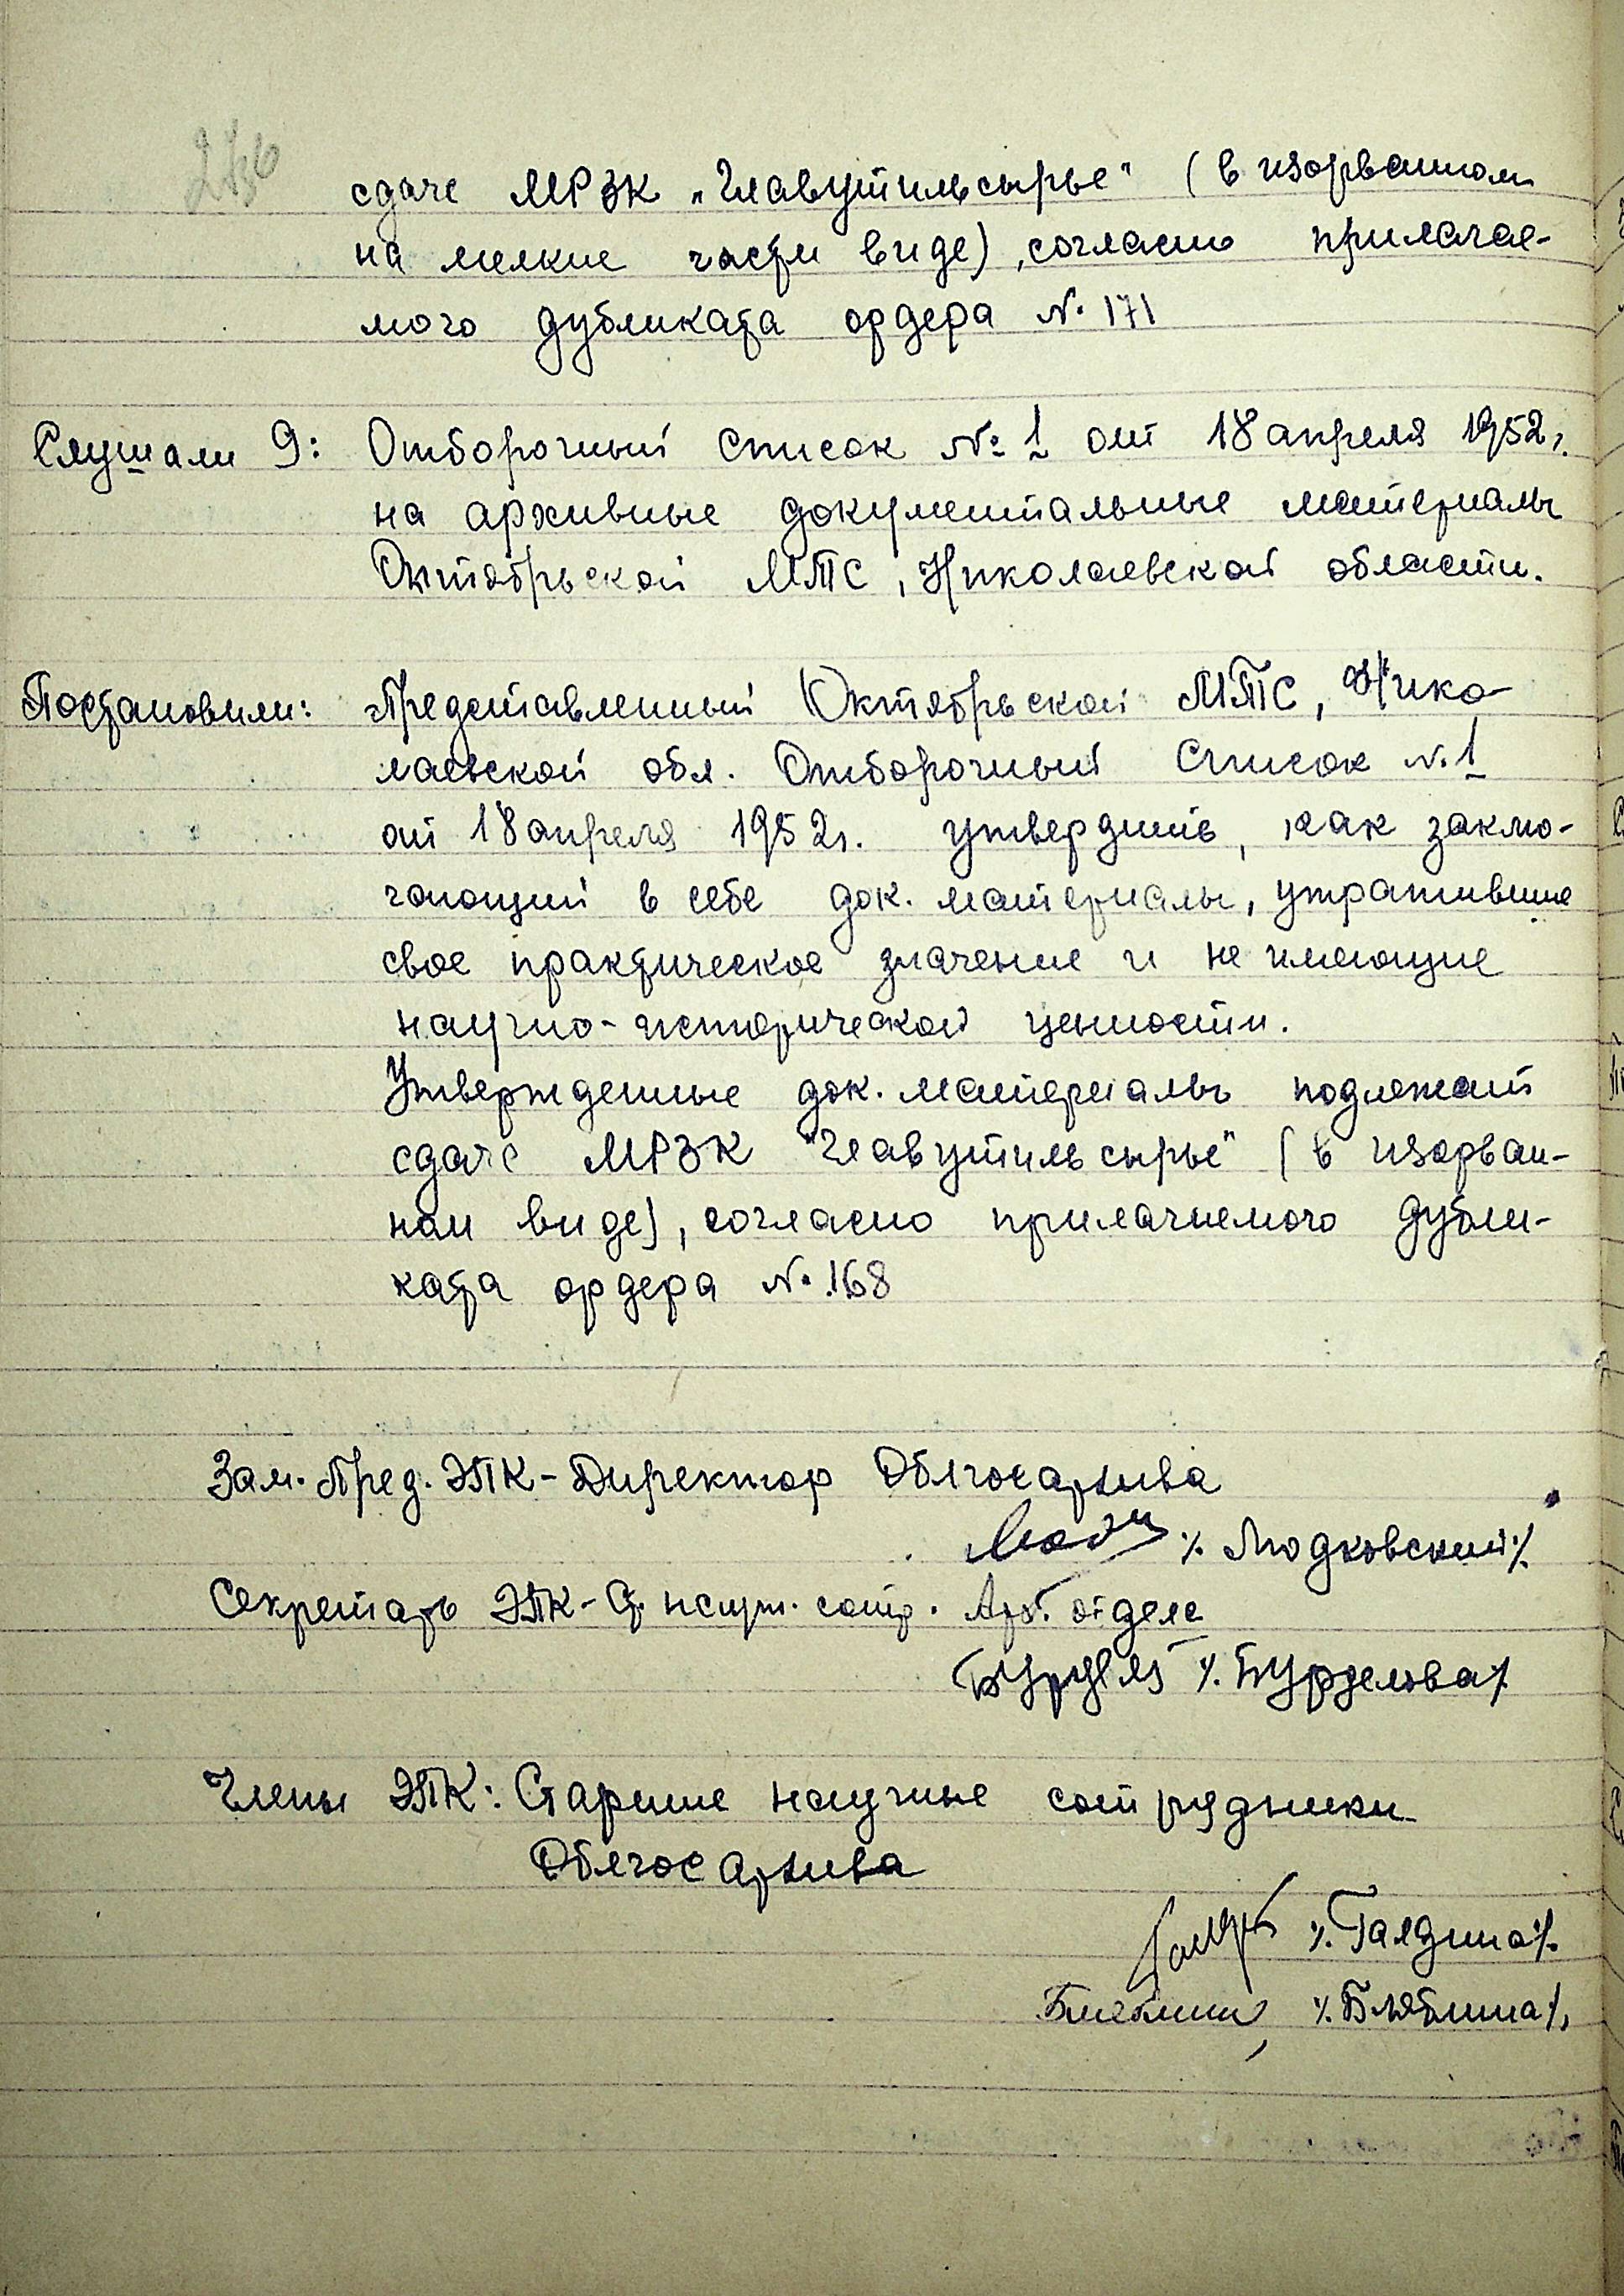 сдаче МРЗК „Главутильсырье" (в изорванном
на мелкие части виде), согласно прилагае-
мого дубликата ордера №171
Слушали 9: Отборочный список № 1 от 18 апреля 1952г.
на архивные документальные материалы
Октябрьской МТС, Николаевской области.
Постановили: Представленный Октябрьской МТС, Нико-
лаевской обл. Отборочный список №1
от 18 апреля 1952г. утвердить, как заклю-
чающий в себе док. материалы, утратившие
свое практическое значение и не имеющие
научно-исторической ценности.
Утвержденные док. материалы подлежат
сдаче МРЗК "Главутильсырье" (в изорван-
ном виде), согласно прилагаемого дубли-
ката ордера №168
Зам. Пред. ЭПК - Директор Облгосархива
%. Людковский %
Секретарь ЭПК - Ст. научн. сотр. Арх. отдела
%. Бурделова %
Члены ЭПК: Старшие научные сотрудники
Облгосархива
%. Галдина %.
%. Блябина %,